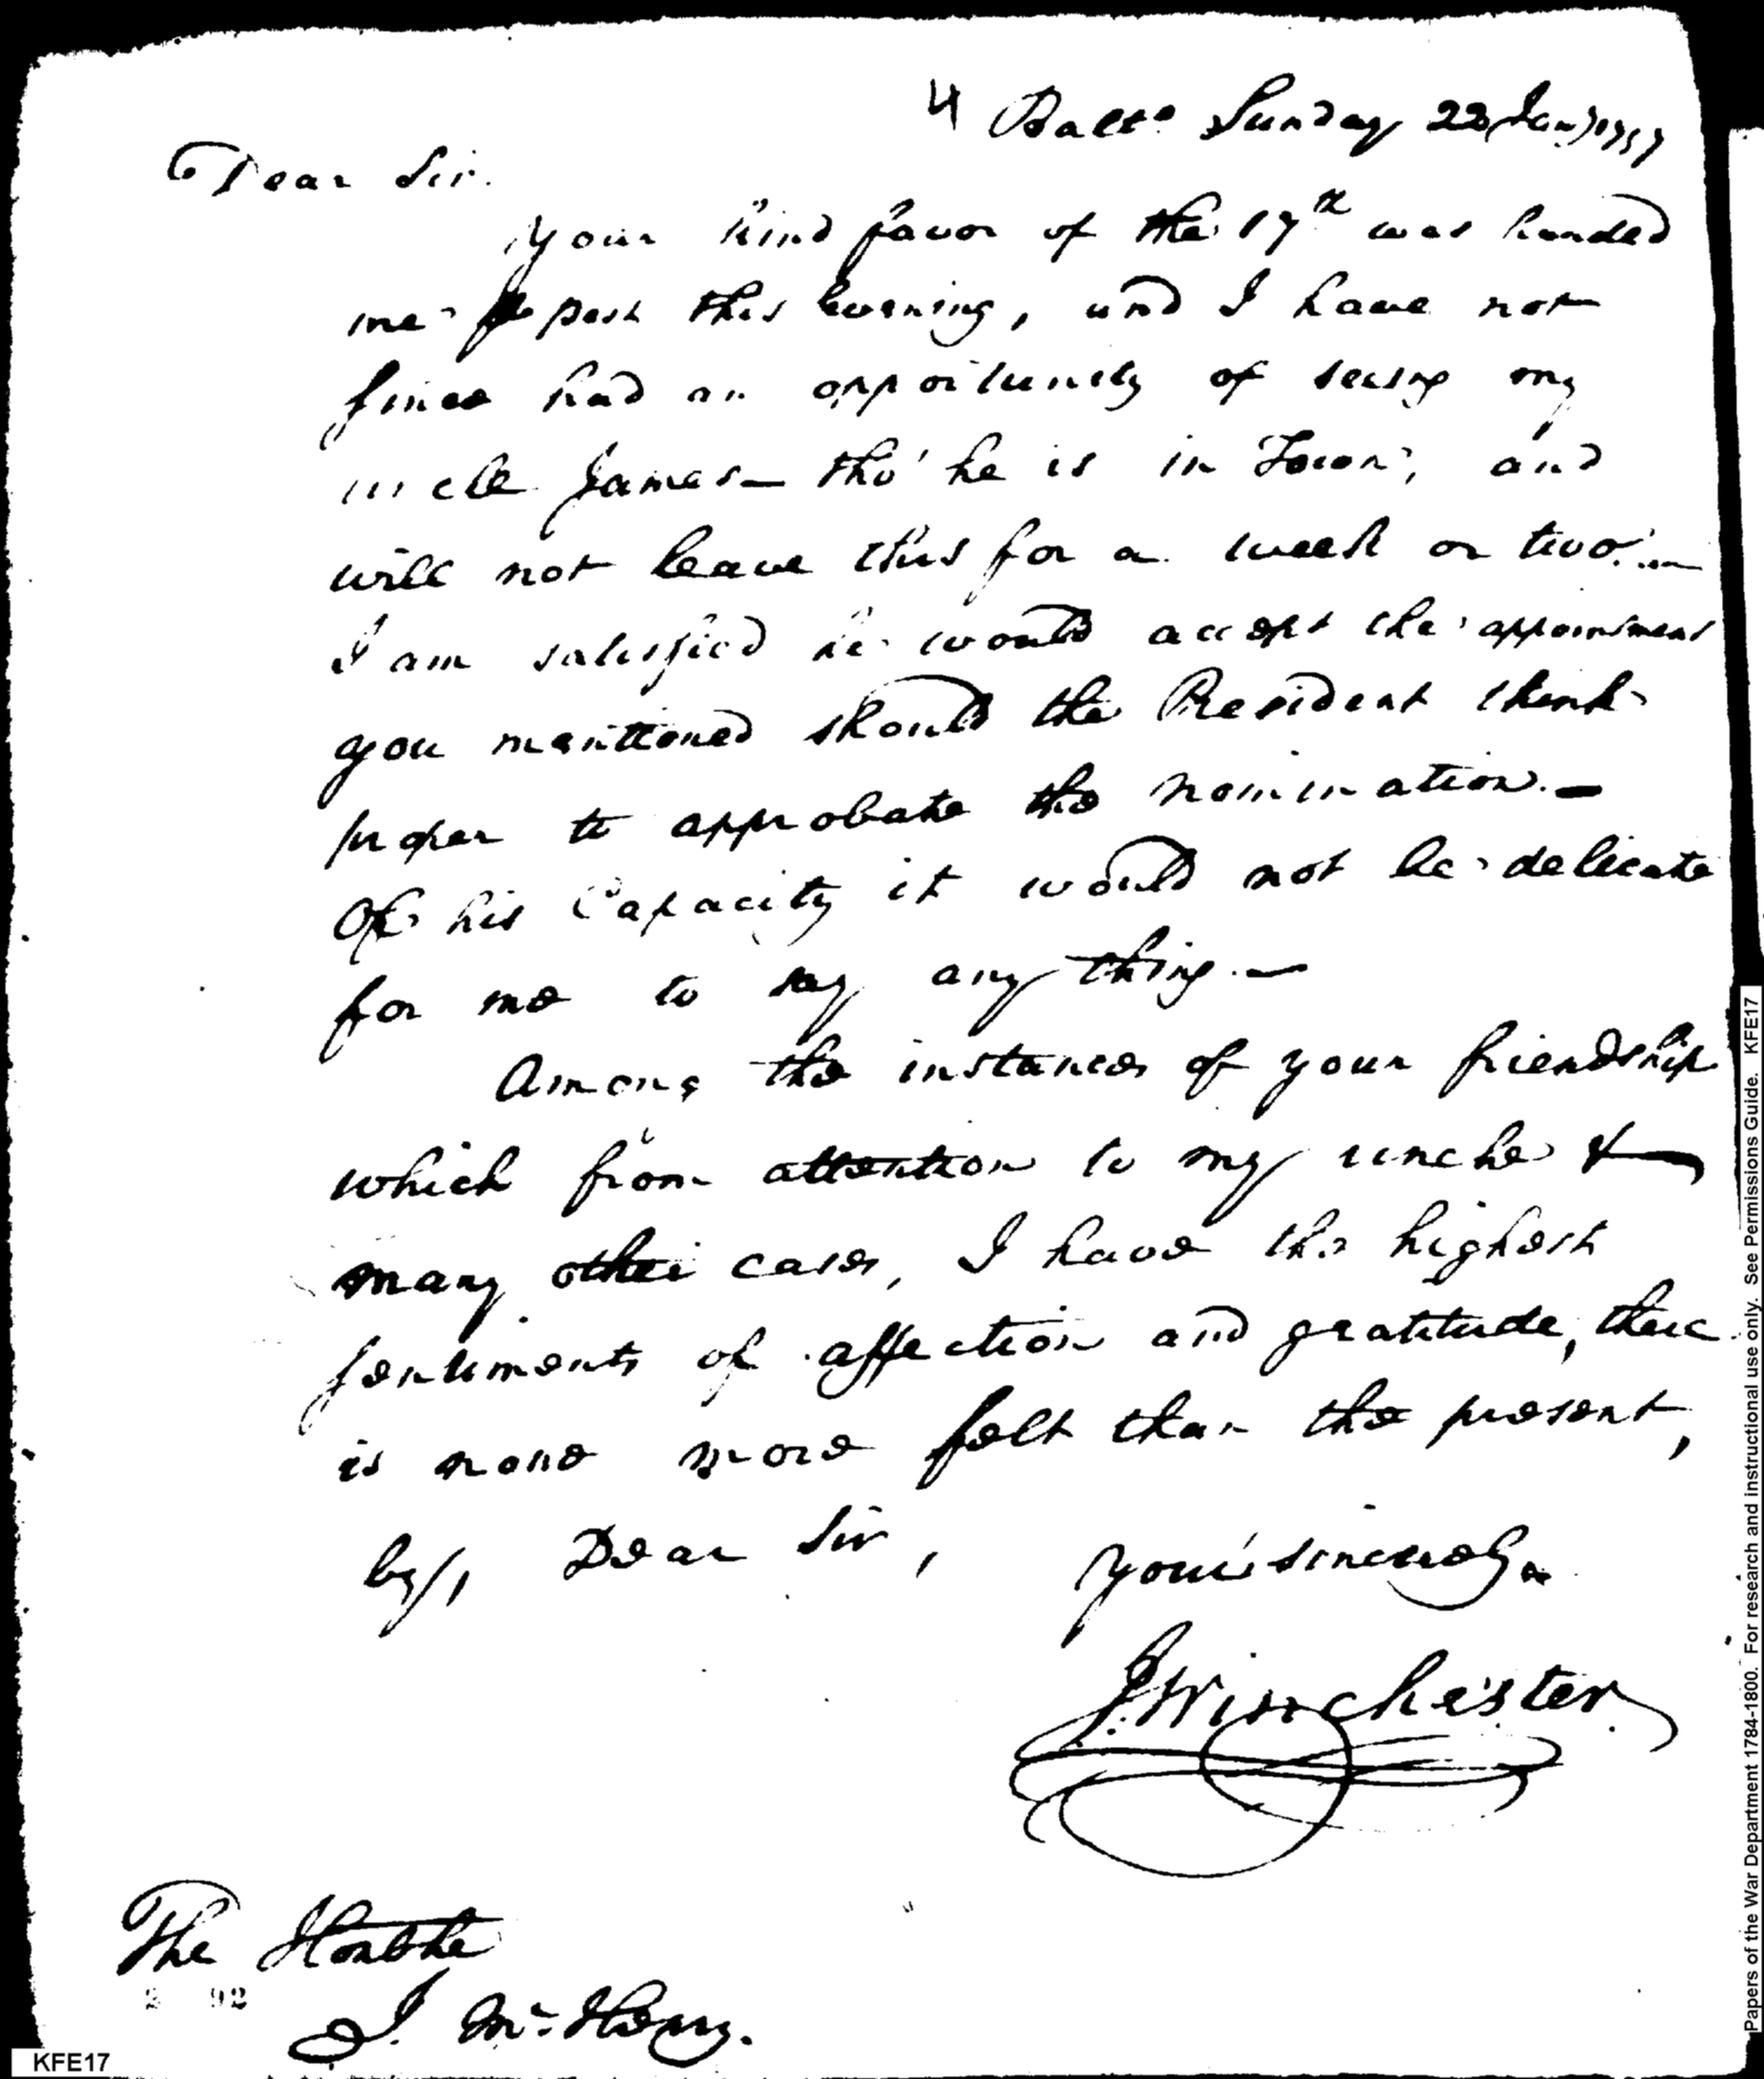 4 Balto. Sunday 22 Jany 1797
Dear Sir.
Your kind favor of the 17th was handed
me p post this evening, and I have not
since had an opportunity of seeing my
uncle James— tho' he is in Town, and
will not leave this for a week or two.—
I am satisfied he would accept the appointment
you mentioned should the President think
proper to approbate the nomination.—
Of his Capacity it would not be delicate
for me to say any thing.—
Among the instances of your friendship
which from attention to my uncle &
many other cases, I have the highest
sentiments of affection and gratitude, there
is none more felt than the present,
by, Dear Sir, Yours sincerely
J. Winchester
The Honble
2 92
J. McHenry.
KFE17
Papers of the War Department 1784-1800. For research and instructional use only. See Permissions Guide. KFE17